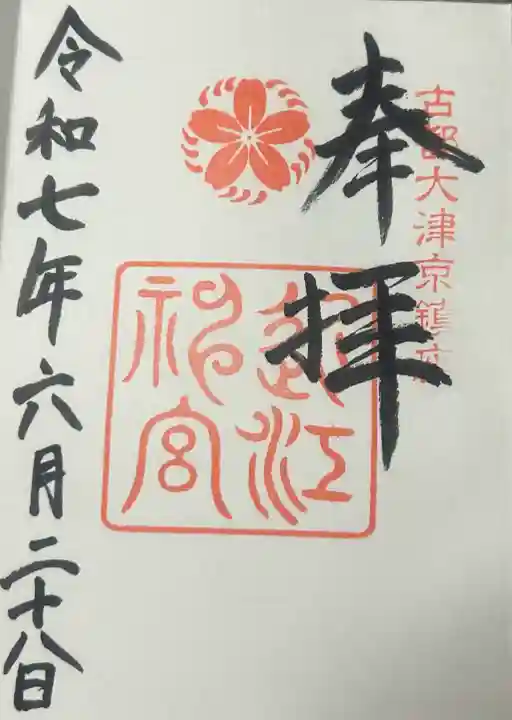 古都大津京鎮座
奉拝
近江
神宮
令和七年六月二十八日